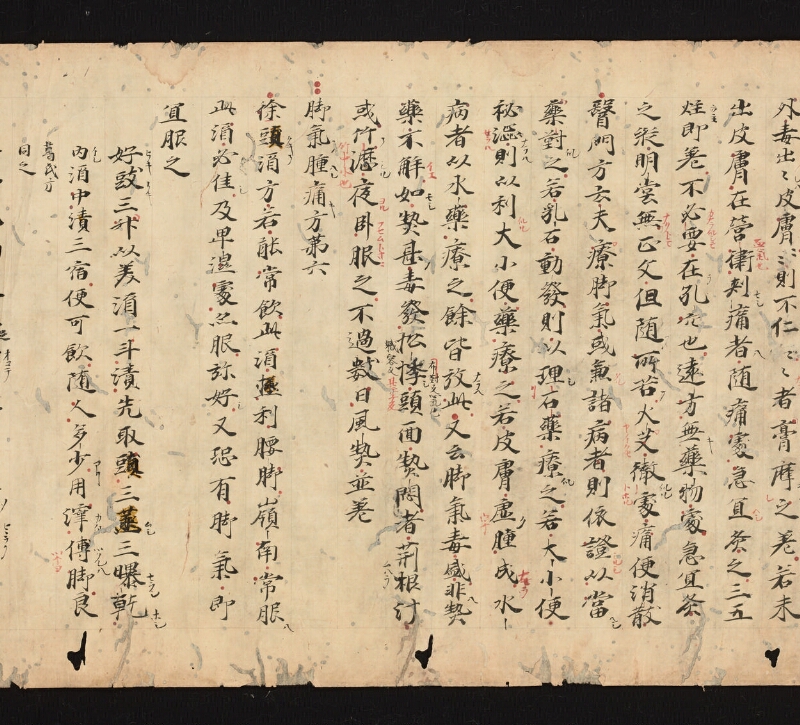 外毒出〻皮膚〻則不仁〻者膏摩之差若未
出皮膚在營衛刾痛者随痛處急宜灸之三五
炷即差不必要在孔穴也遠方無藥物處急宜灸
之秘明堂無正文但随所苦火艾徹處痛便消散
醫門方云夫療脚氣或兼諸病者則依證以當
藥對之若乳石動發則以理石藥療之若大小便
秘澁則以利大小便藥療之若皮膚虚腫成水
病者以水藥療之餘皆放此又云脚氣毒盛非勢
藥不解如勢甚毒發忪悸頭面勢悶者荊根汁
或竹瀝夜卧服之不過數日風勢並差
脚氣腫痛方第六
徐頭酒方若能常飲此酒極利腰脚嶺南常服
此酒必佳及卑濕處亦服弥好又恐有脚氣即
宜服之
好豉三升以美酒一斗漬先取頭三蒸三曝乾
内酒中漬三宿便可飲随人多少用滓傅脚良
葛氏方
同之